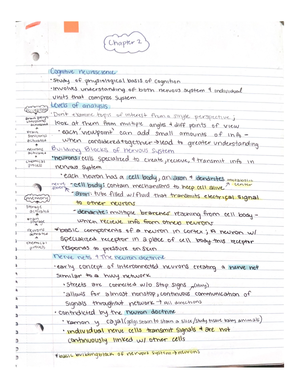 Chapter 2
Cognitive neuroscience:
• study of physiological basis of cognition
• involves understanding of both nervous system & individual
units that comprise system
Levels of analysis:
• Dont examine topic of interest from a single perspective;
look at them from multiple angles & diff points of view
• each "viewpoint" can add small amounts of info -
when considered together → lead to greater understanding
Building Blocks of Nervous System
neurons: cells specialized to create, recieve, & transmit info in
nervous system
• each neuron has a cell body, an axon & dendrites
• cell body: contain mechanisms to keep cell alive
• axon: tube filled w/fluid that transmits electrical signal
to other neurons
• dendrites: multiple branches reaching from cell body -
which receive info from other neurons
• basic components of a neuron in cortex; & neuron w/
specialized receptor in place of cell body this receptor
responds to pressure on skin
Nerve nets & The neuron doctrine
• early concept of interconnected neurons creating a nerve net
similar to a hwy network
• streets are connected w/o stop signs
• allows for almost nonstop, continuous communication of
signals throughout network → all directions
• contridicted by the neuron doctrine
• ramon y cajal
• individual nerve cells transmit signals & are not
continuously linked w/ other cells